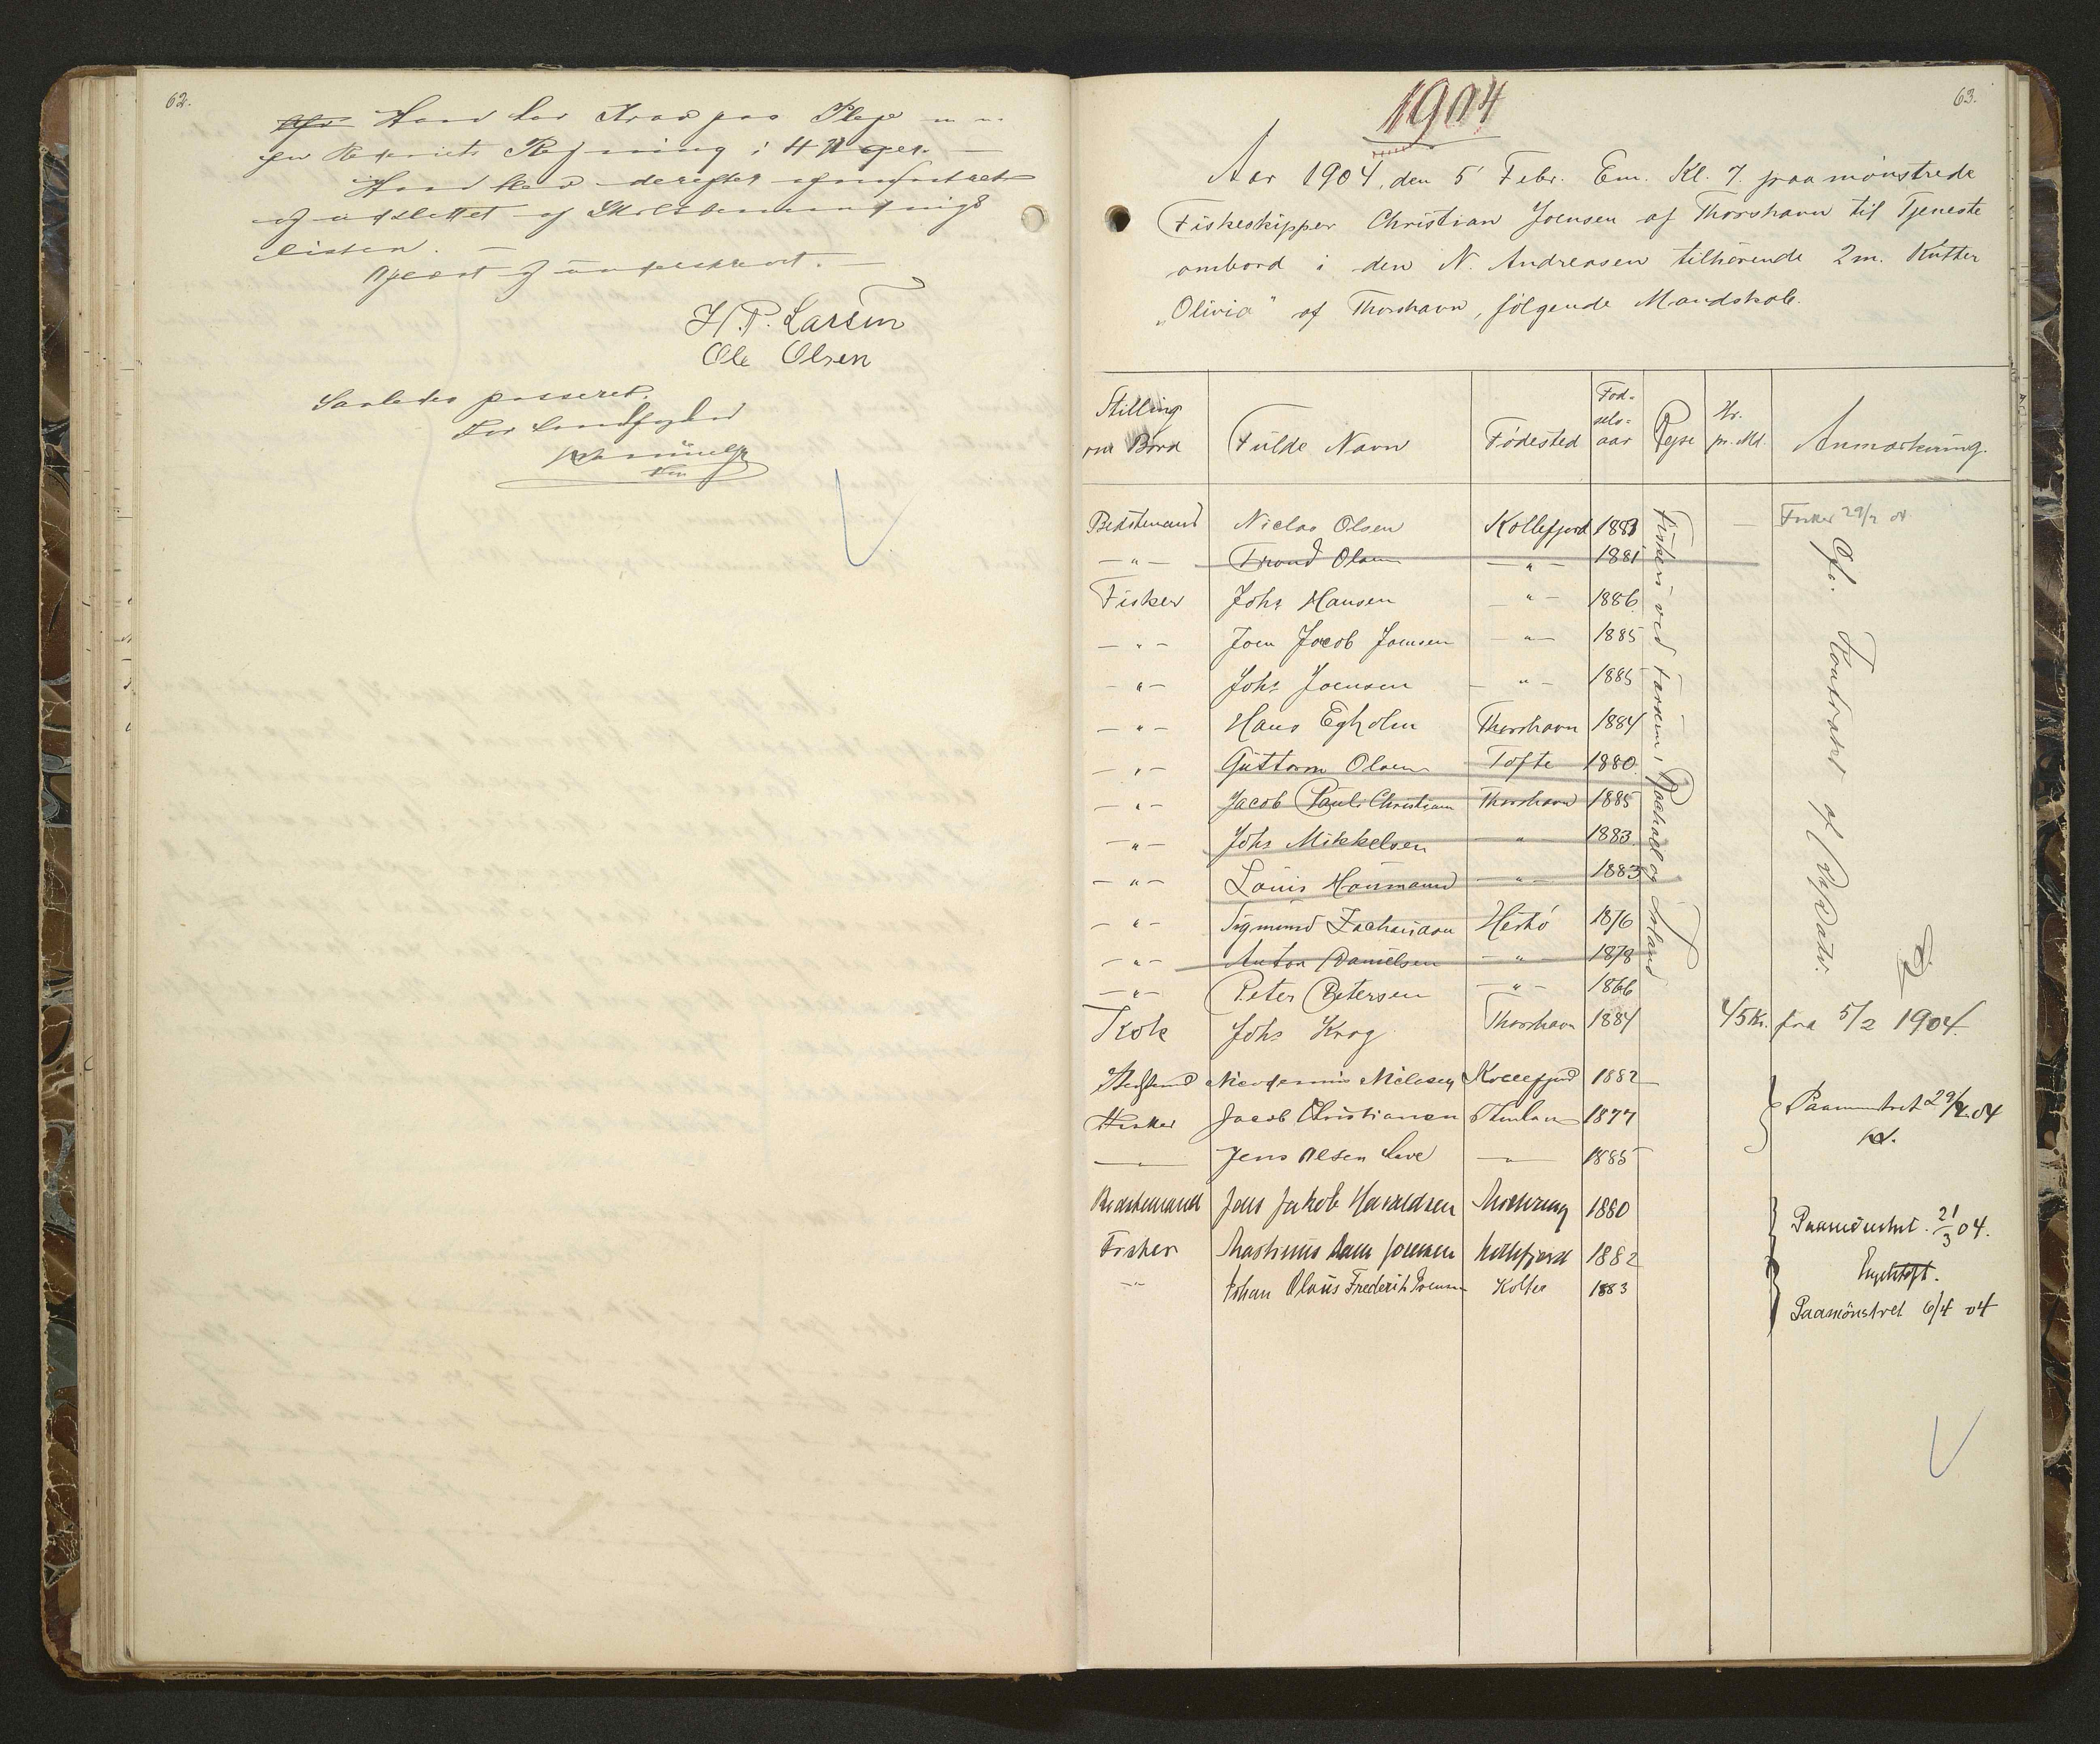 62.
Han har Krav paa Pleje
Regning i 4 Uger. —
Han blev derefter
og udslettet af
listen. —
Oplæst og underskrevet. —
H. P. Larsen
Ole Olsen
Saaledes passeret.
For Landfogden
63.
1904
Aar 1904, den 5' Febr. Em. Kl. 7. paamönstrede
Fiskeskipper Christian Joensen af Thorshavn til Tjeneste
ombord i den N. Andreasen tilhörende 2m. Kutter
„Olivia" af Thorshavn, fölgende Mandskab.
Stilling om Bord | Fulde Navn | Födested | Fød-sels-aar | Rejse | Kr. pr. Md. | Anmærkning.
Bedstemand Niclas Olsen Kollefjord 1883 Fisker 29/2 04
— " — Trond Olsen — " — 1881
Fisker Johs Hansen — " — 1886
— " — Joen Jacob Joensen — " — 1885
— " — Johs Joensen — " — 1885
— " — Hans Egholm Thorshavn 1884
— " — Guttorm Olsen Tofte 1880
— " — Jacob Pauli Christiansen Thorshavn 1885
— " — Johs Mikkelsen — " — 1883
— " — Louis Houmand — " — 1883
— " — Sigmund Zachariasen Hestö 1876
— " — Anton Danielsen — " — 1878
— " — Peter Petersen — " — 1866
Kok Johs Krog Thorshavn 1884 45 Kr. fra 5/2 1904.
Fiskeri ved Færöerne, Rockall og Island
Gl. Kontrakt af D/D Dato.
Nielsen Kollefjord 1882
Fisker Jacob Christiansen 1877 Paamönstret 29/2 04
Jens Olsen — " — 1885
Bedstemand Jens Jakob Haraldsen 1880 Paamönstret 21/3 04.
Fisker Joensen Kollefjord 1882
— " — Johan Olaüs Frederik Joensen Kolter 1883
Paamönstret 6/4 04